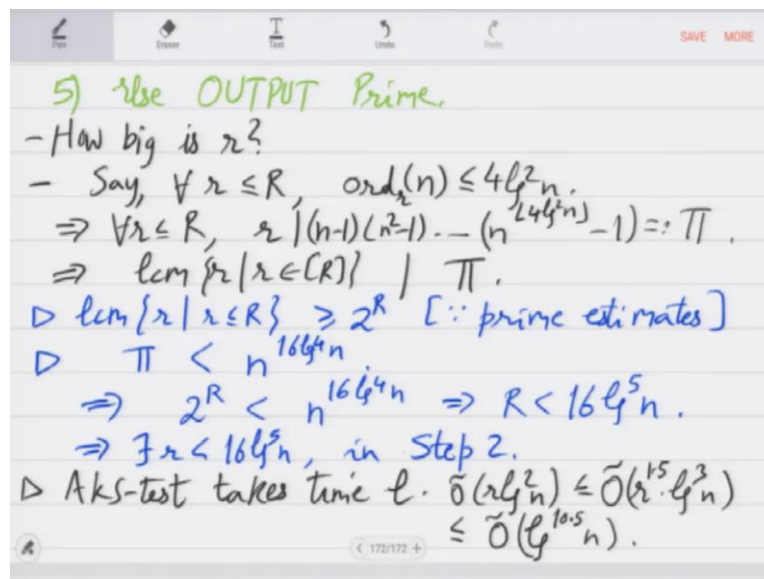 Pen Eraser Text Undo Redo SAVE MORE
5) else OUTPUT Prime.
- How big is r?
- Say, ∀ r ≤ R, ord_r(n) ≤ 4lg²n.
⇒ ∀r ≤ R, r | (n-1)(n²-1)....(n^⌊4lg²n⌋ -1) =: Π.
⇒ lcm{r | r∈[R]} | Π.
▷ lcm{r | r≤R} ≥ 2^R [∵ prime estimates]
▷ Π < n^16lg⁴n.
⇒ 2^R < n^16lg⁴n ⇒ R < 16lg⁵n.
⇒ ∃r < 16lg⁵n, in Step 2.
▷ AKS-test takes time ℓ. Õ(rlg²n) ≤ Õ(r^1.5. lg³n)
≤ Õ(lg^10.5 n).
< 172/172 +